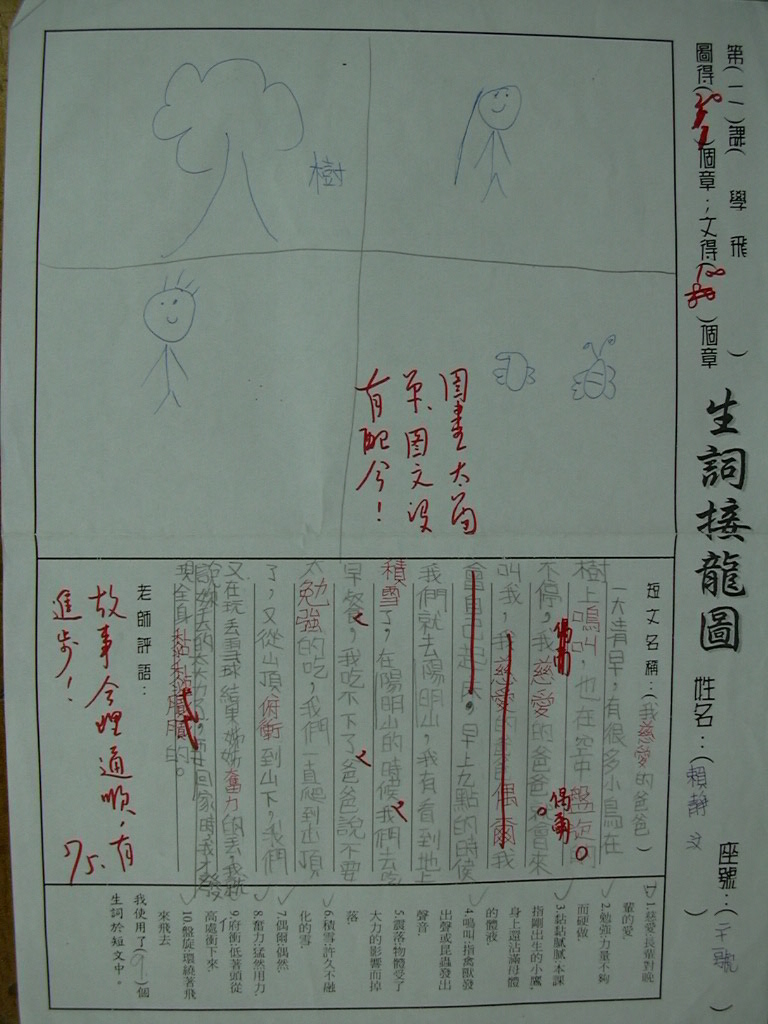 第(一一)課(學飛)
圖得( )個章;文得( )個章
生詞接龍圖
姓名:(賴靜文)
座號:( 號)
樹
圖畫太簡
單、圖文沒
有配合!
短文名稱:(我慈愛的爸爸)
一大清早,有很多小鳥在
樹上鳴叫,也在空中盤旋的
不停,我慈愛的爸爸 會來
偶爾
叫我,我慈愛的爸爸偶爾我
偶爾
會自己起床。早上九點的時候
我們就去陽明山,我有看到地上
積雪了,在陽明山的時候我們去吃
早餐,我吃不下了爸爸說不要
太勉強的吃,我們一直爬到山頂
了,又從山頂俯衝到山下,我們
又在玩丟雪球結果姊姊奮力的丟,我就
回家時,我才發
現全身黏黏膩膩的。
老師評語:
故事合理通順,有
進步!
75.
1.慈愛:長輩對晚
輩的愛。
2.勉強:力量不夠
而硬做。
3.黏黏膩膩:本課
指剛出生的小鷹,
身上還沾滿母體
的體液。
4.鳴叫:指禽獸發
出聲或昆蟲發出
聲音。
5.震落:物體受了
大力的影響而掉
落。
6.積雪:許久不融
化的雪。
7.偶爾:偶然。
8.奮力:猛然用力。
9.俯衝:低著頭從
高處衝下來。
10.盤旋:環繞著飛
來飛去
我使用了(9)個
生詞於短文中。